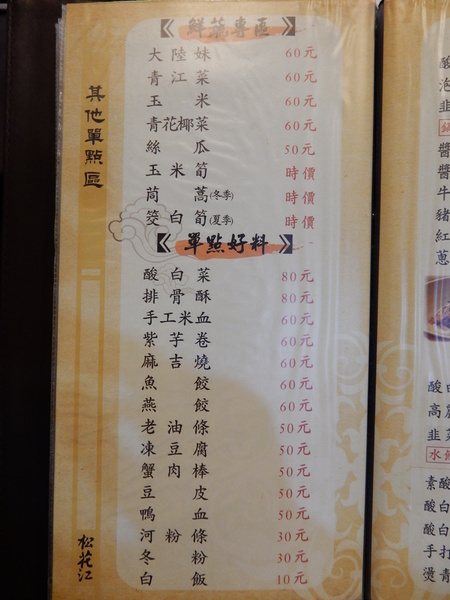 其他單點區
鮮蔬專區
大陸妹 60元
青江菜 60元
玉米 60元
青花椰菜 60元
絲瓜 50元
玉米筍 時價
茼蒿(冬季) 時價
筊白筍(夏季) 時價
單點好料
酸白菜 80元
排骨酥 80元
手工米血 60元
紫芋卷 60元
麻吉燒 60元
魚餃 60元
燕餃 60元
老油條 50元
凍豆腐 50元
蟹肉棒 50元
豆皮 50元
鴨血 50元
河粉條 30元
冬粉 30元
白飯 10元
松花江
酸
泡
韭
醬
醬
牛
豬
紅
蔥
酸白
高
韭菜
水餃
素酸
酸白
酸白
手打
燙青